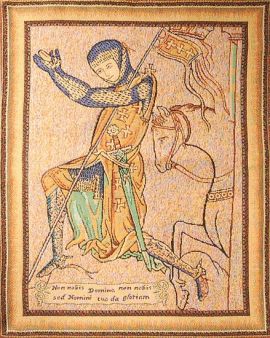 Non nobis Domine, non nobis
sed Nomini tuo da gloriam